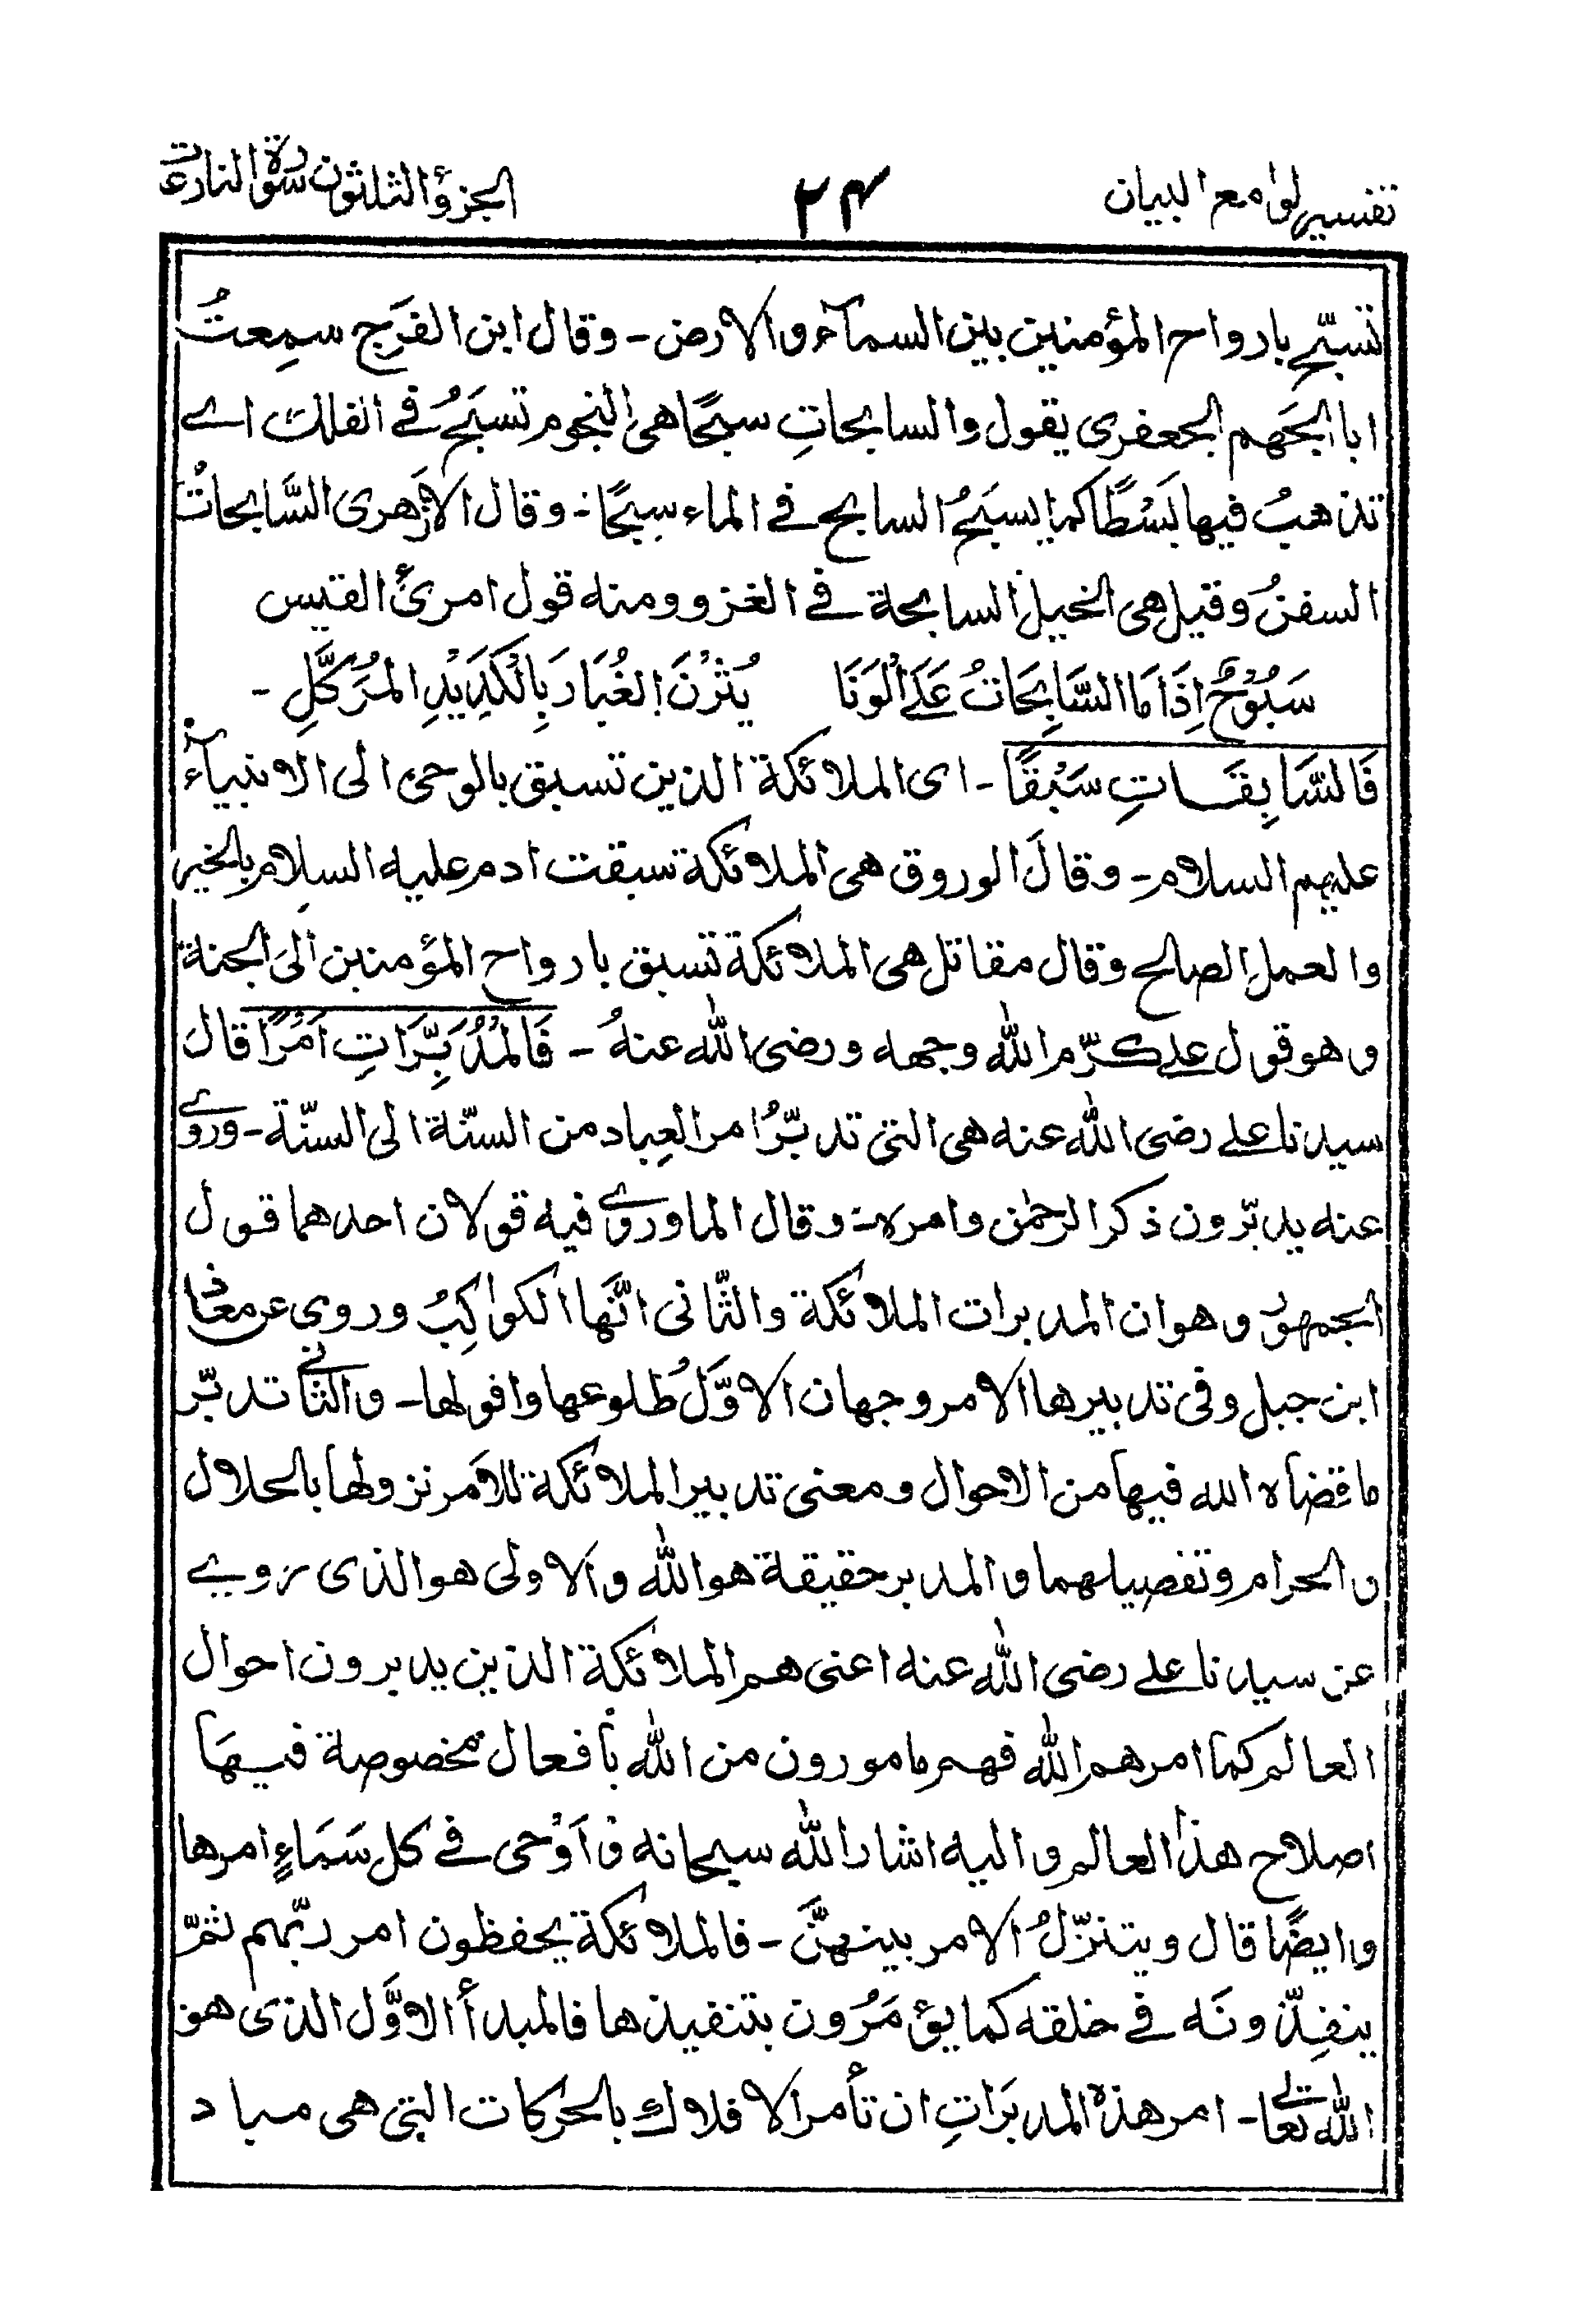 تفسير لوامع البيان ٢٤ الجزؤ الثلثون سورة النازعات
تسبّح بارواح المؤمنين بين السمآء والارض - وقال ابن الفَرَج سمِعتُ
ابا الجَهم الجعفرى يقول والسابحاتِ سبحًا هى النجوم تسبَحُ فے الفلك اے
تذهبُ فيها بَسْطًا كما يسبَحُ السابح فے الماء سبحًا - وقال الازهرى السَّابحاتُ
السفنُ وقيل هى الخيل السابحة فے الغزو ومنه قول امرئ القيس
سَبُوْحٌ اِذَا مَا السَّابِحَاتُ عَلَے الْوَنَا يُثِرْنَ الغُبَارَ بِالْكَدِيْدِ المُرَكَّلِ -
فَالسَّابِقَاتِ سَبْقًا - اى الملائكة الذين تسبق بالوحى الى الانبيآء
عليهم السلام - وقال الوروق هى الملائكة سبقت ادم عليه السلام بالخير
والعمل الصالح وقال مقاتل هى الملائكة تسبق بارواح المؤمنين الى الجنة
وهو قول علے كرّم الله وجهه ورضى الله عنهُ - فَالْمُدَبِّرَاتِ اَمْرًا قال
سيدنا علے رضى الله عنه هى التى تدبّرُ امر العِباد من السنّة الى السنّة - وروے
عنه يدبّرون ذكر الرحمٰن وامره - وقال الماوروے فيه قولان احدهما قول
الجمهور وهو ان المدبرات الملائكة والثّانى انّها الكواكِبُ وروى عن معاذ
ابن جبل وفى تدبيرها الامر وجهان الاوّلُ طلوعها وافولها - والثانے تدبّر
ما قضاه الله فيها من الاحوال ومعنى تدبير الملائكة للامر نزولها بالحلال
والحرام وتفصيلهما والمدبر حقيقة هو الله والاولى هو الذى روے
عن سيدنا علے رضى الله عنه اعنى هم الملائكة الذين يدبرون احوال
العالم كما امرهم الله فهم مامورون من الله بأفعال مخصوصة فيهَا
اصلاح هذا العالم واليه اشار الله سبحانه وَاَوْحى فے كل سَمَاءٍ امرها
وايضًا قال ويتنزّلُ الامر بينهنَّ - فالملائكة يحفظون امر ربّهم ثمّ
ينفِذّونَه فے خلقه كما يؤمَرُون بتنفيذها فالمبدأ الاوَّل الذى هو
الله تعالے - امر هذه المدبرَاتِ ان تأمر الافلاك بالحركات التى هى مباد